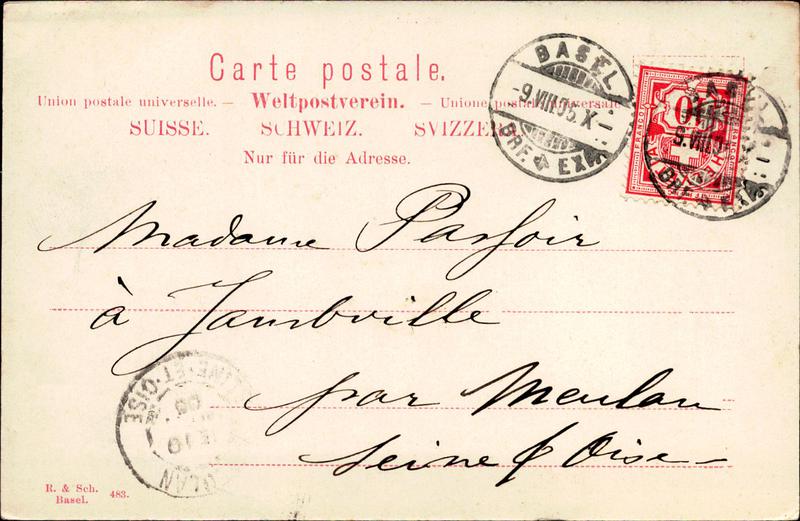 Carte postale.
Union postale universelle. — Weltpostverein. — Unione postale universale
SUISSE. SCHWEIZ. SVIZZERA
Nur für die Adresse.
BASEL
-9.VIII.05.X-
BRF. EXP.
10
FRANCO
Madame Parfoir
à Jambville
par Meulan
Seine & Oise
SEINE-ET-OISE
R. & Sch.
Basel. 483.